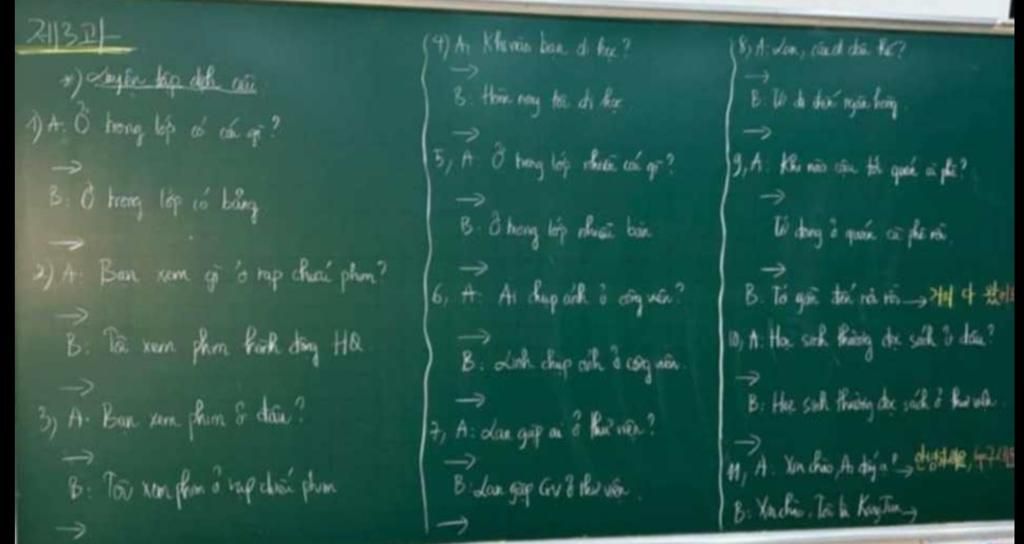 제3과
*) Luyện tập dịch câu
1) A: Ở trong lớp có cái gì?
→
B: Ở trong lớp có bảng
→
2) A: Bạn xem gì ở rạp chiếu phim?
→
B: Tôi xem phim hành động HQ
→
3) A: Bạn xem phim ở đâu?
→
B: Tôi xem phim ở rạp chiếu phim
→
(4) A: Khi nào bạn đi học?
→
B: Hôm nay tôi đi học
→
5, A: Ở trong lớp nhiều cái gì?
→
B: Ở trong lớp nhiều bàn
→
6, A: Ai chụp ảnh ở công viên?
→
B: Linh chụp ảnh ở công viên
→
7, A: Lan gặp ai ở thư viện?
→
B: Lan gặp GV ở thư viện
→
8, A: Lan, cậu đi đâu thế?
→
B: Tớ đi đến ngân hàng
→
9, A: Khi nào cậu tới quán cà phê?
Tớ đang ở quán cà phê rồi
→
B: Tớ gần đến nơi rồi → 거의 다
10, A: Học sinh thường đọc sách ở đâu?
→
B: Học sinh thường đọc sách ở thư viện
→
11, A: Xin chào, Ai đấy ạ? →
B: Xin chào. Tôi là →